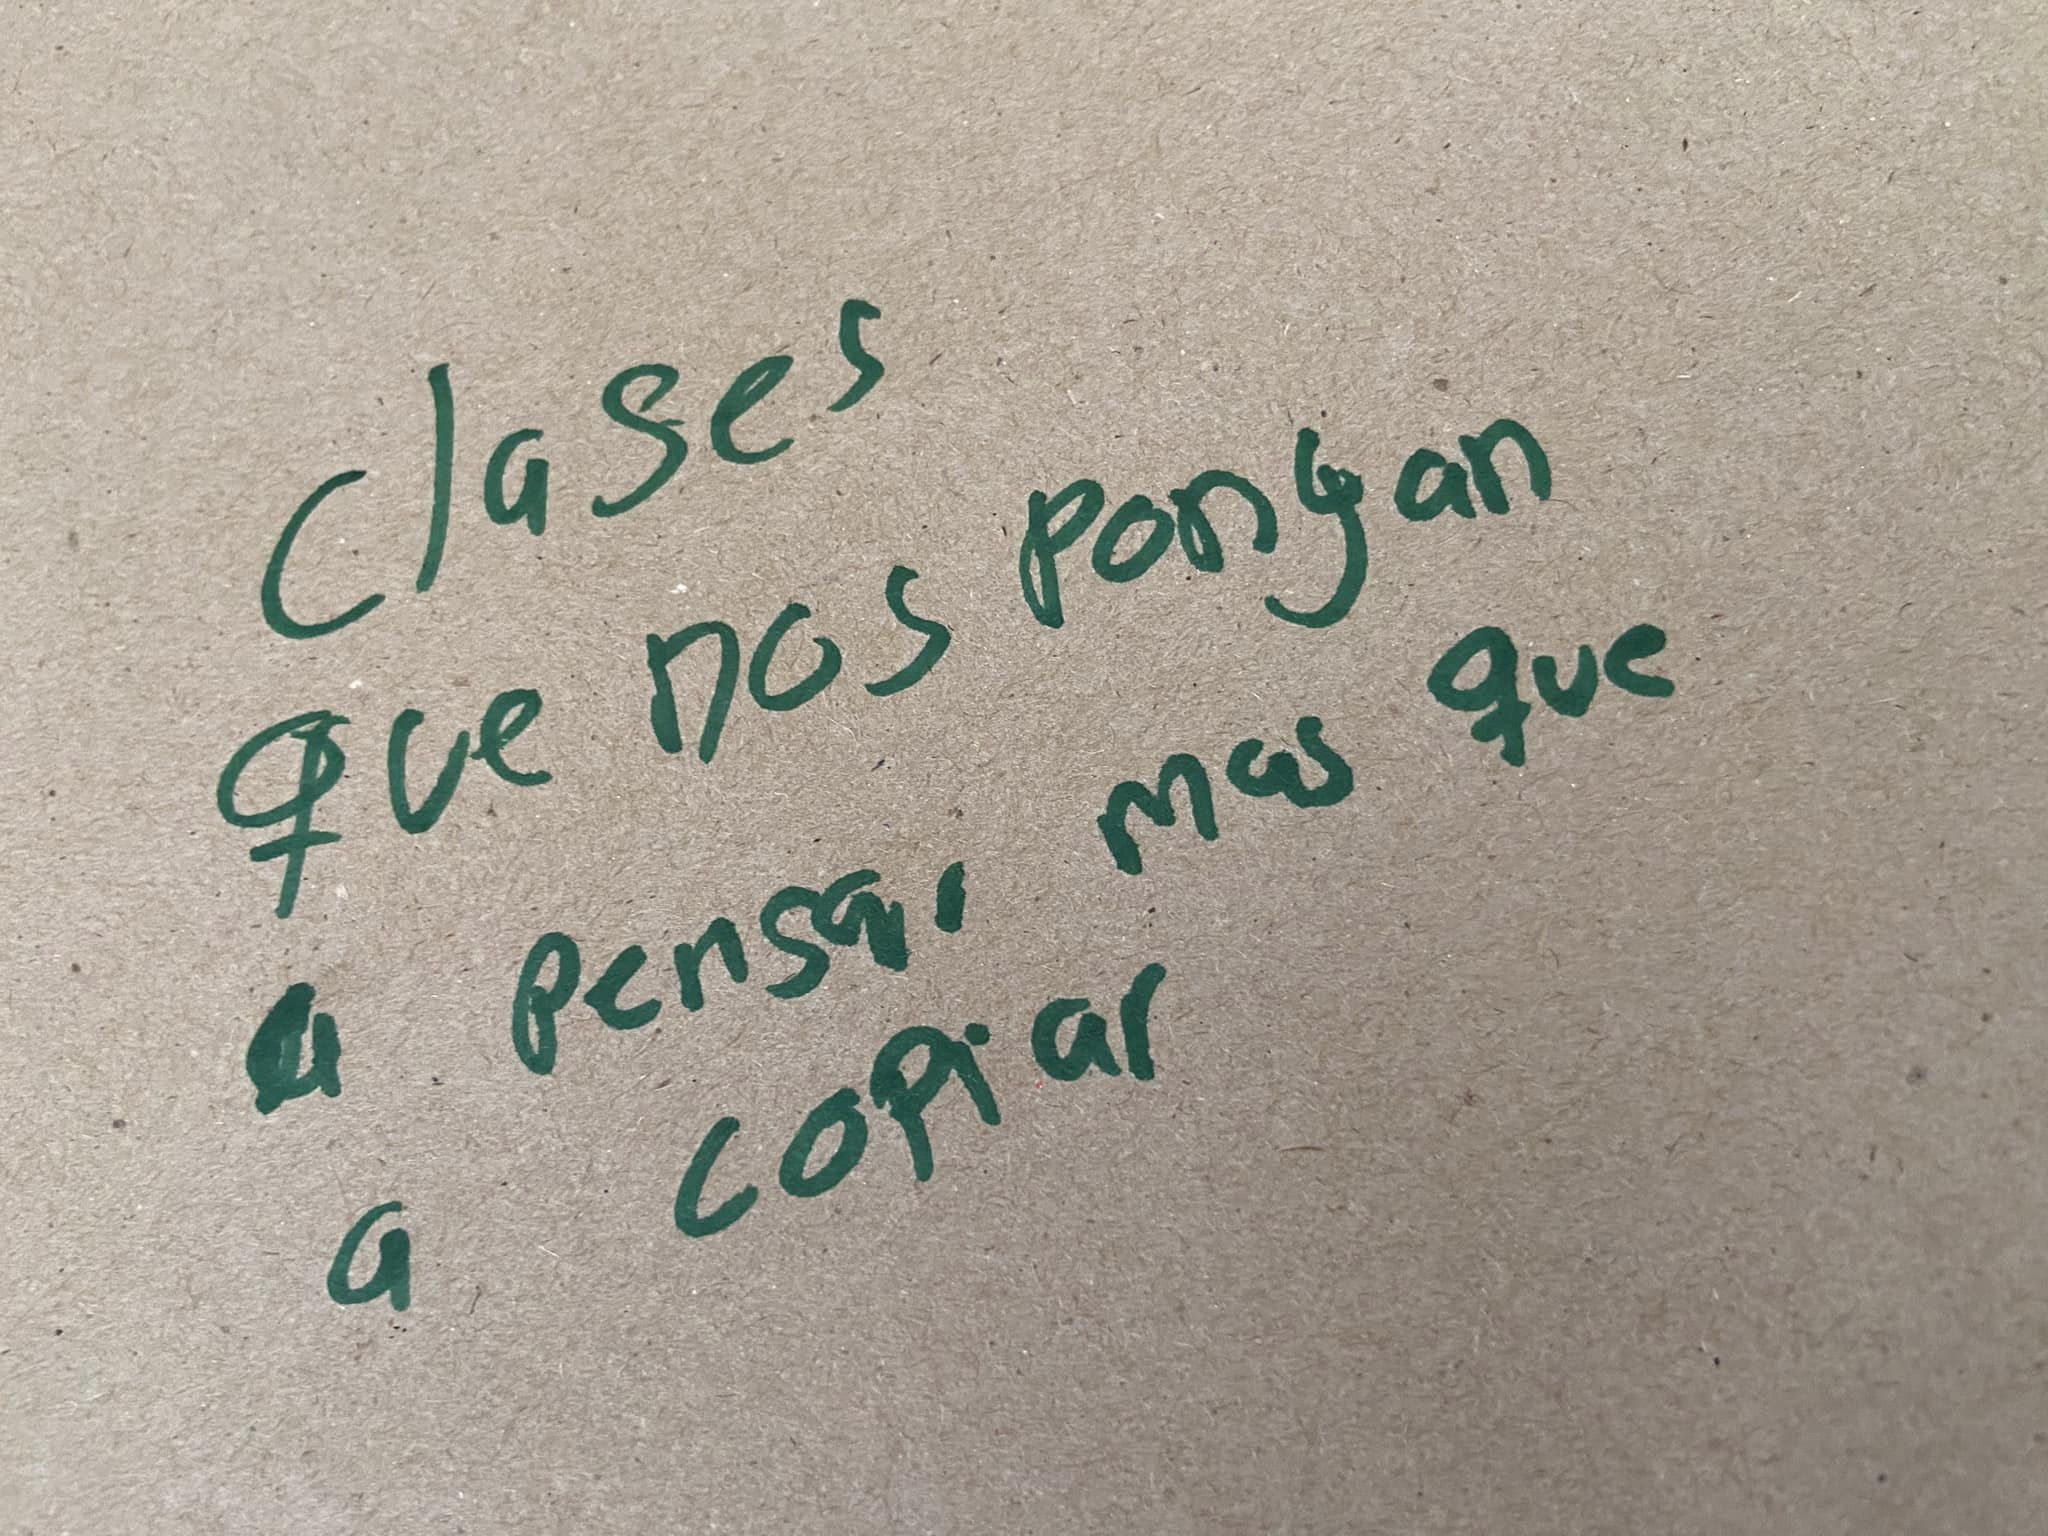 Clases
que nos pongan
a pensar mas que
a copiar